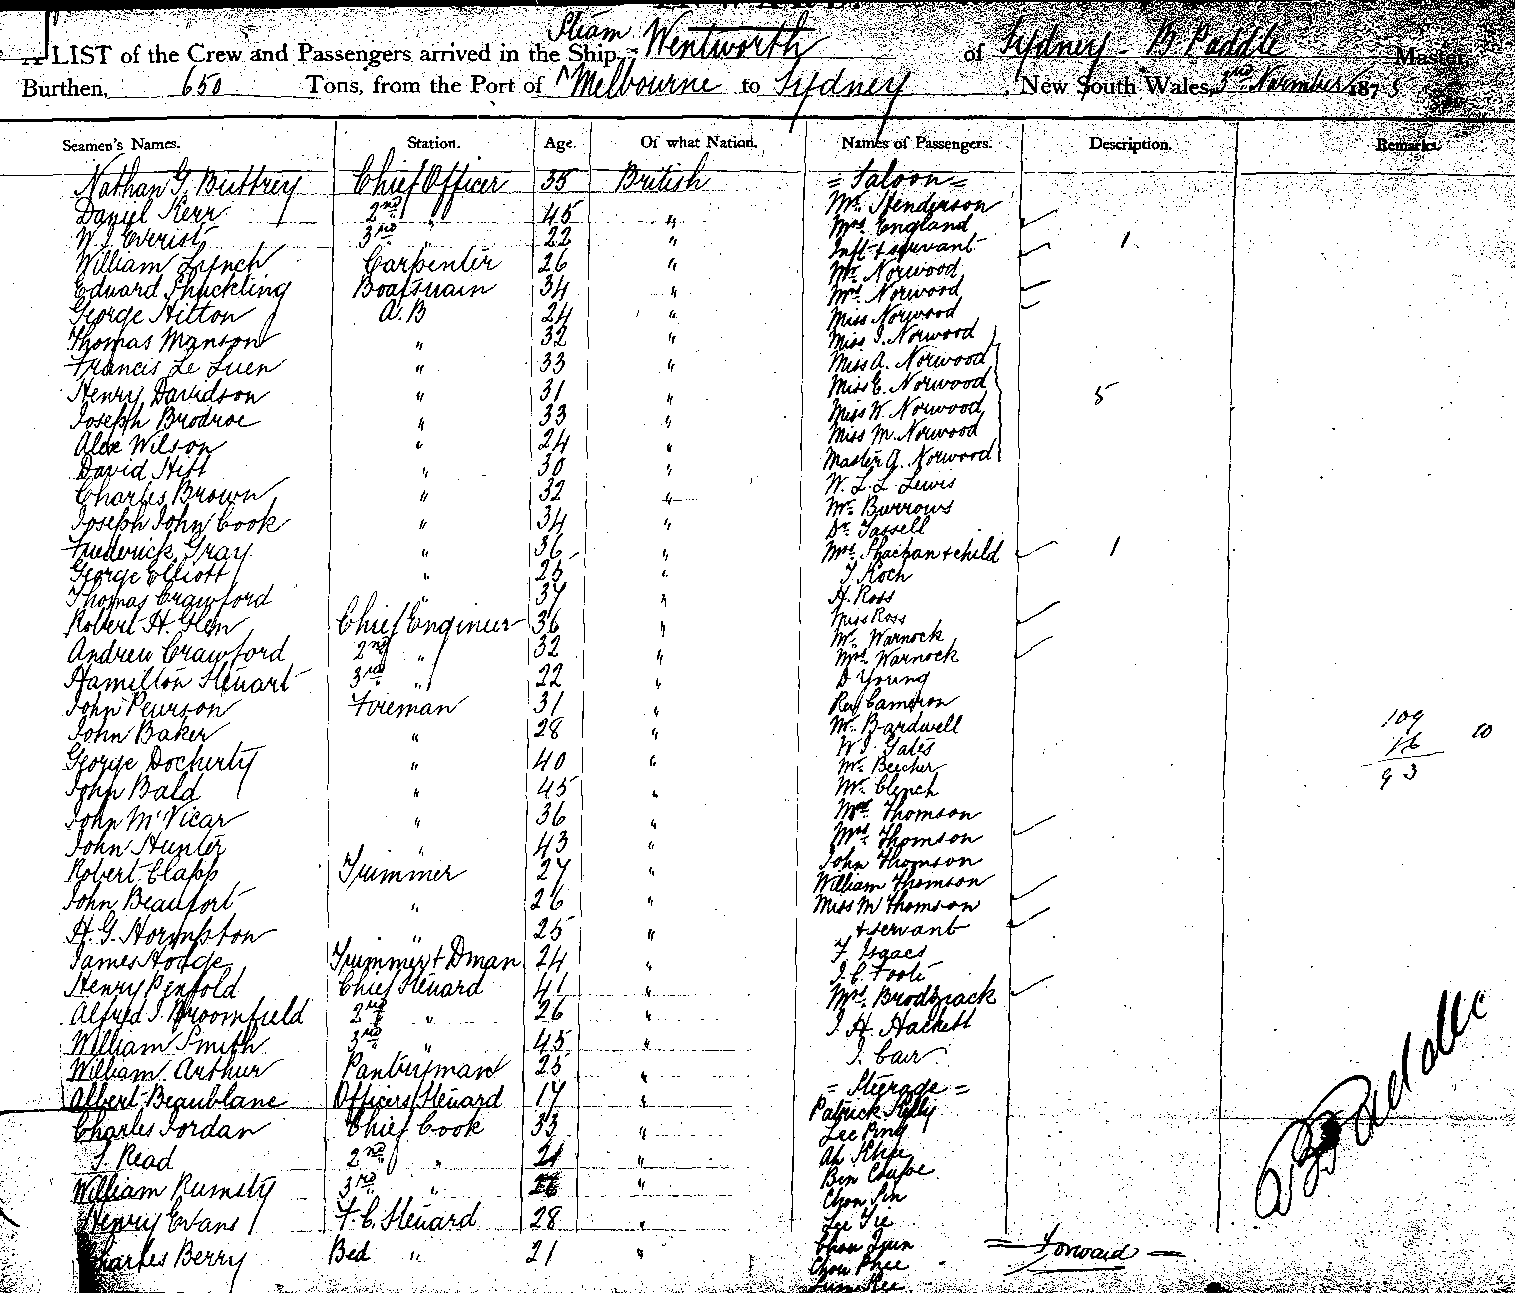 Steam
A LIST of the Crew and Passengers arrived in the Ship, Wentworth of Sydney - B Paddle Master,
Burthen, 650 Tons, from the Port of Melbourne to Sydney, New South Wales, 3rd November 1875
Seamen's Names. Station. Age. Of what Nation. Names of Passengers. Description. Remarks.
Nathan G. Buttrey Chief Officer 35 British = Saloon =
Daniel Kerr 2nd " 45 " Mr. Henderson
W. J. Everist 3rd " 22 " Mrs. England
Inft + servant 1
William Lynch Carpenter 26 " Mr. Norwood
Edward Shuckling Boatswain 34 " Mrs. Norwood
George Hilton A.B 24 " Miss Norwood
Thomas Manson " 32 " Miss J. Norwood
Francis Le Luen " 33 " Miss A. Norwood
Henry Davidson " 31 " Miss E. Norwood 5
Joseph Brodroe " 33 " Miss W. Norwood
Alex Wilson " 24 " Miss M. Norwood
David Hift " 30 " Master A. Norwood
Charles Brown " 32 " W. L. L. Lewis
Joseph John Cook " 34 " Mr. Burrows
Dr. Tassell
Frederick Gray " 36 " Mrs. + child 1
George Elliott " 25 " J. Koch
Thomas Crawford " 37 " H. Ross
Robert H. Glen Chief Engineer 36 " Miss Ross
Mr. Warnock
Andrew Crawford 2nd " 32 " Mrs. Warnock
Hamilton Stuart 3rd " 22 " D Young
John Pearson Fireman 31 " Rev Cameron
John Baker " 28 " Mr. Bardwell 109
W. J. Gates 16 10
George Docherty " 40 " Mr. Beecher 93
John Bald " 45 " Mr. Clynch
John McVicar " 36 " Mr. Thomson
John Hunter " 43 " Mrs. Thomson
John Thomson
Robert Clapp Trimmer 27 " William Thomson
John Beaufort " 26 " Miss M Thomson
H. G. Hormpston " 25 " + servant
James Hodge Trimmer + Dman 24 " F. Isaacs
J. C. Foote
Henry Penfold Chief Steward 41 " Mrs. Brodziack
Alfred J. Broomfield 2nd " 26 " J. H. Hackett
William Smith 3rd " 45 " J. Cair
William Arthur Pantryman 25 " = Steerage =
Albert Beaublanc Officers Steward 17 " Patrick Kelly
Charles Jordan Chief Cook 33 " Lee Ping
J. Read 2nd " 21 " Ah
William Rumsty 3rd " 26 " Bin
Chon Sin
Henry Evans F. C. Steward 28 " Lee Tie
Charles Berry Bed " 21 " Chou = Forward =
Chou Phee
B Paddle